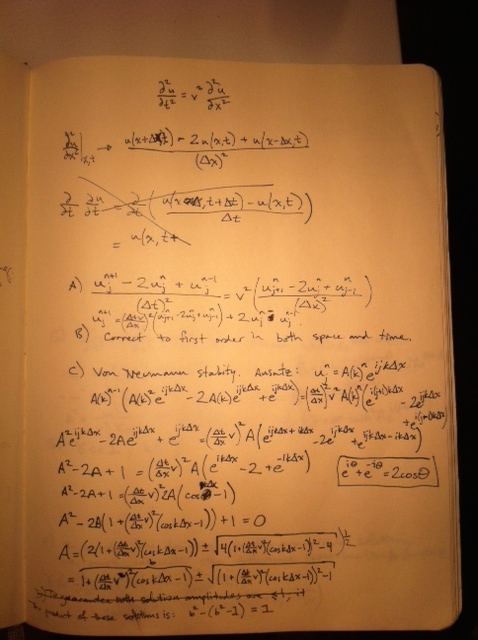 ∂²u/∂t² = v² ∂²u/∂x²
∂²u/∂x²|x,t → (u(x+Δx,t) - 2u(x,t) + u(x-Δx,t))/(Δx)²
∂/∂t ∂u/∂t = ∂/∂t ((u(x, t+Δt) - u(x,t))/Δt)
= u(x, t+
A) (u_j^{n+1} - 2u_j^n + u_j^{n-1})/(Δt)² = v² ((u_{j+1}^n - 2u_j^n + u_{j-1}^n)/(Δx)²)
u_j^{n+1} = (Δt v/Δx)² (u_{j+1}^n - 2u_j^n + u_{j-1}^n) + 2u_j^n - u_j^{n-1}
B) Correct to first order in both space and time.
C) Von Neumann stabity. Ansatz: u_j^n = A(k)^n e^{ijkΔx}
A(k)^{n-1} (A(k)² e^{ijkΔx} - 2A(k) e^{ijkΔx} + e^{ijkΔx}) = (Δt/Δx)² v² A(k)^n (e^{i(j+1)kΔx} - 2e^{ijkΔx} + e^{i(j-1)kΔx})
A² e^{ijkΔx} - 2A e^{ijkΔx} + e^{ijkΔx} = (Δt/Δx v)² A (e^{ijkΔx+ikΔx} - 2e^{ijkΔx} + e^{ijkΔx-ikΔx})
A² - 2A + 1 = (Δt/Δx v)² A (e^{ikΔx} - 2 + e^{-ikΔx})
e^{iθ} + e^{-iθ} = 2cosθ
A² - 2A + 1 = (Δt/Δx v)² 2A (cos kΔx - 1)
A² - 2A(1 + (Δt/Δx v)² (cos kΔx - 1)) + 1 = 0
A = (2(1 + (Δt/Δx v)² (cos kΔx - 1)) ± √(4(1 + (Δt/Δx v)² (cos kΔx - 1))² - 4)) 1/2
b
= 1 + (Δt/Δx v)² (cos kΔx - 1) ± √((1 + (Δt/Δx v)² (cos kΔx - 1))² - 1)
both solution amplitudes are ≤ 1, it
product of these solutions is: b² - (b² - 1) = 1